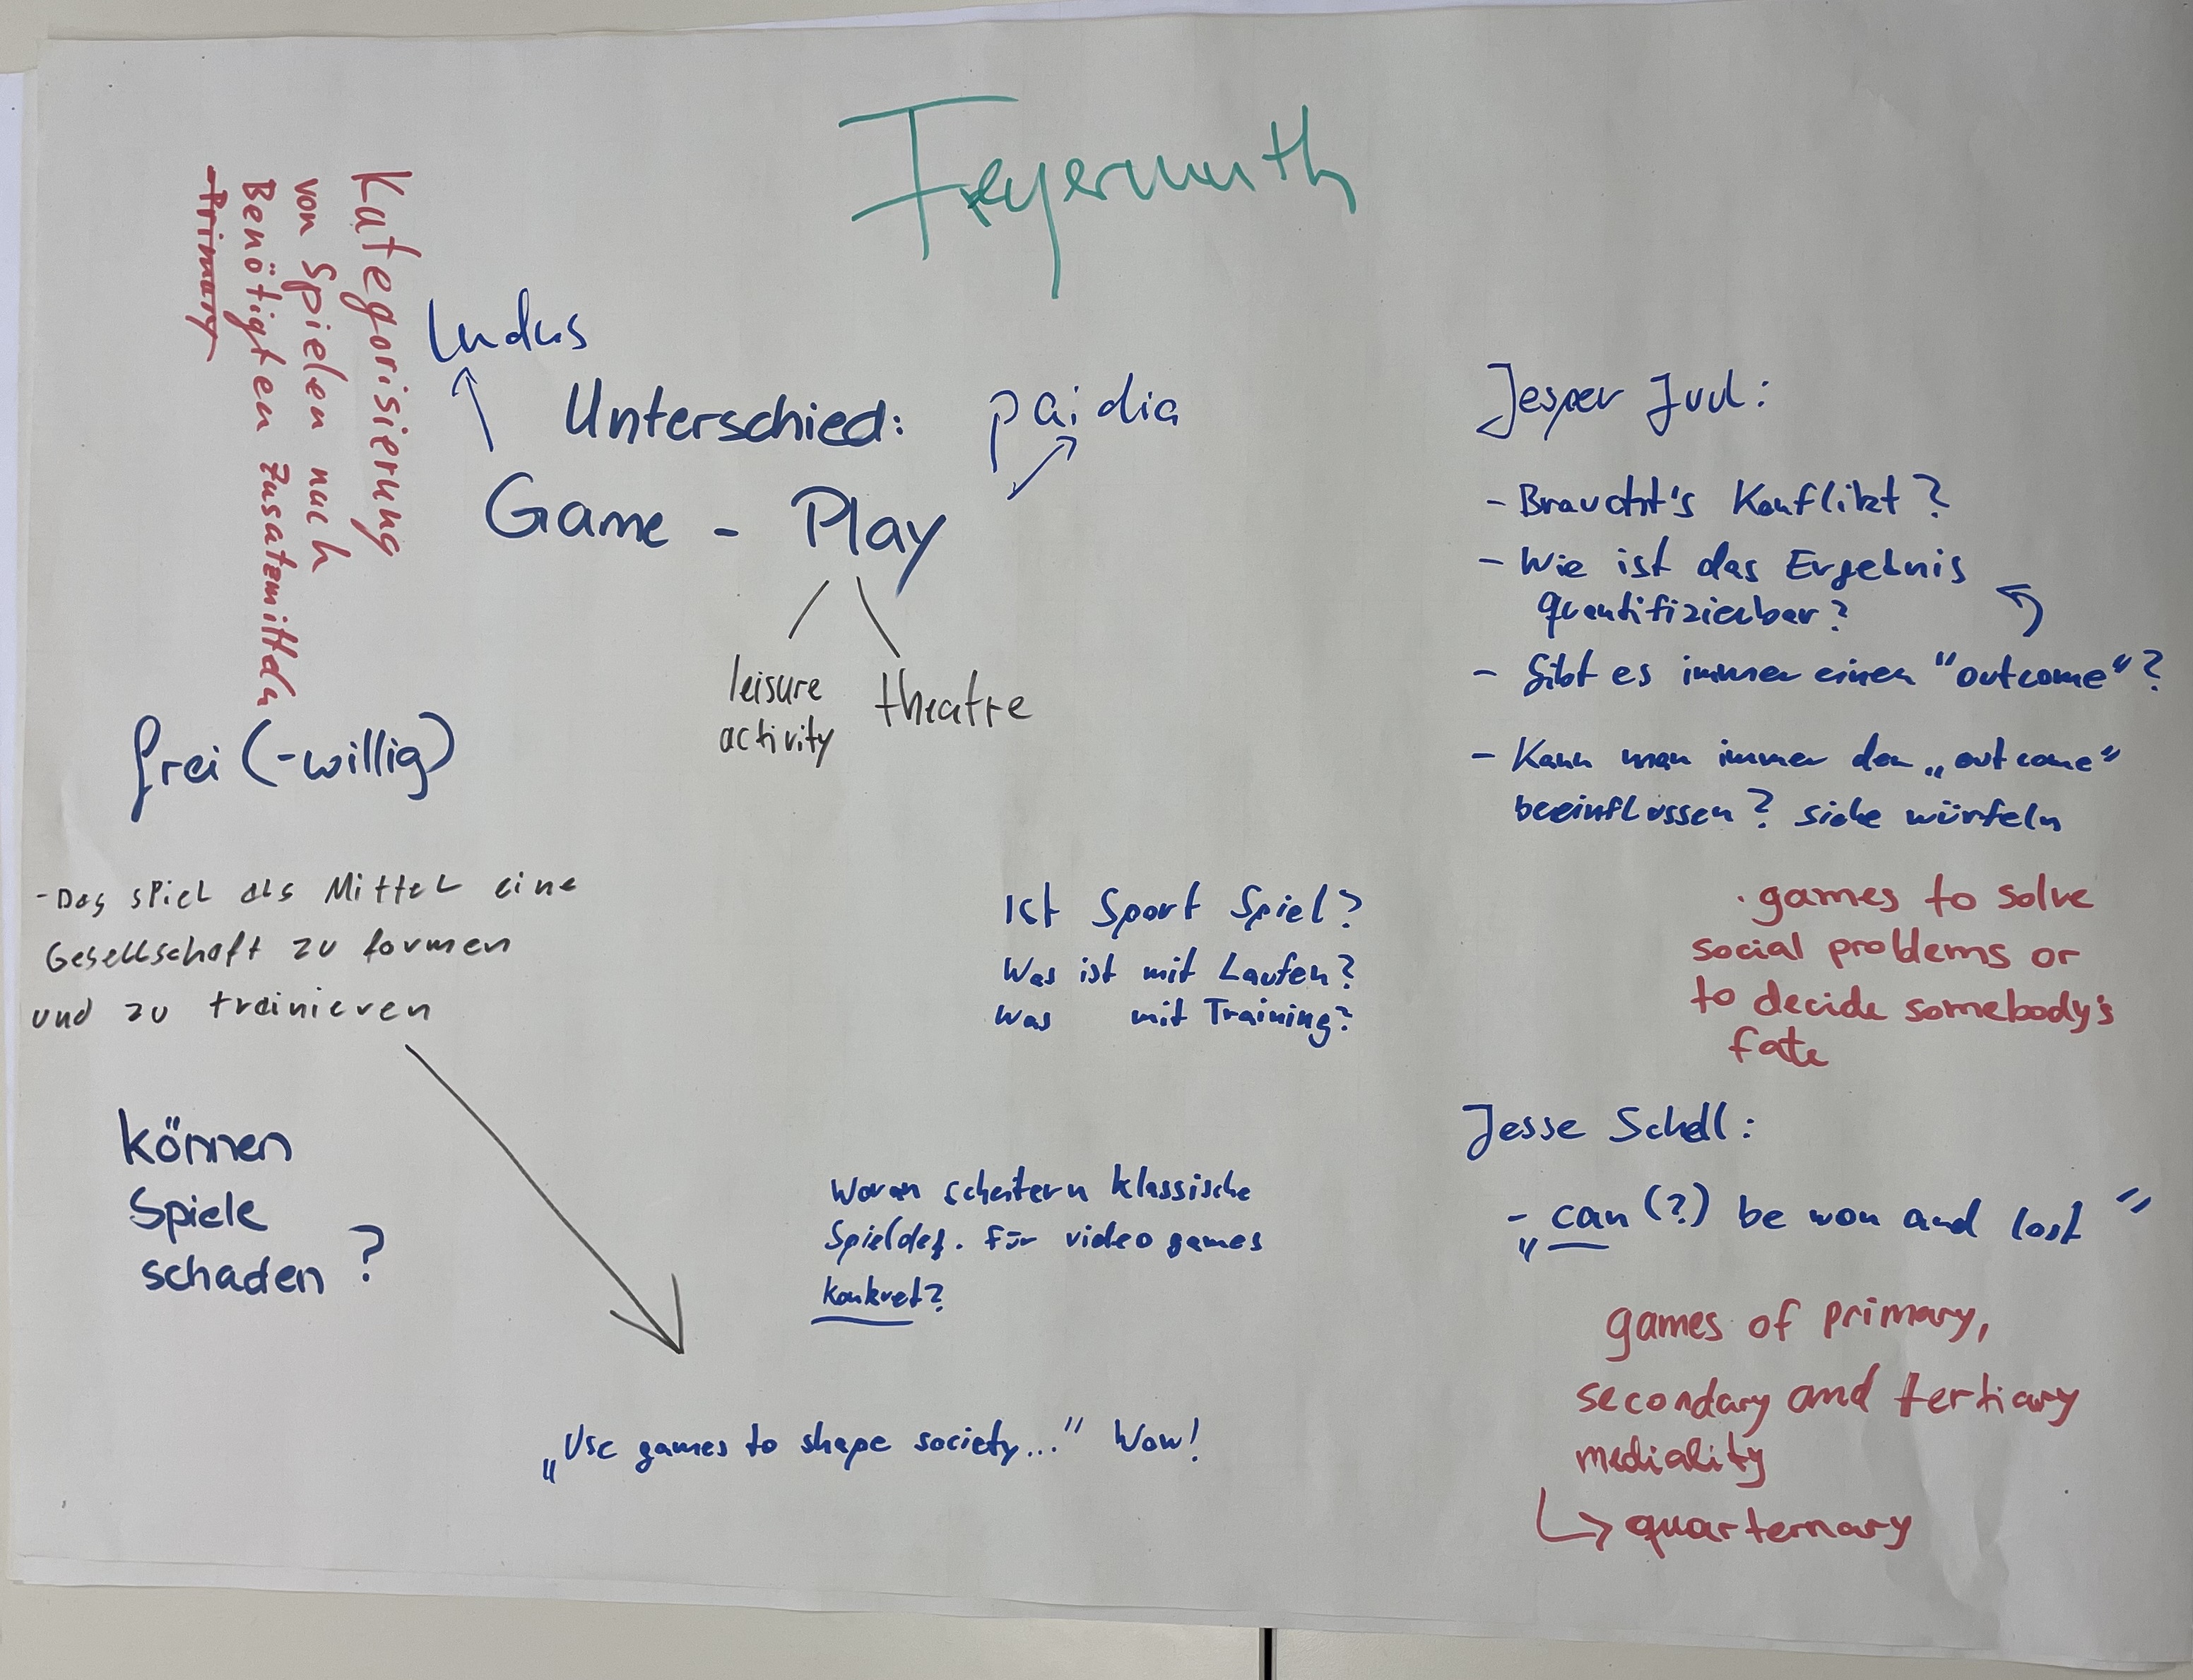 Feyermuth
Kategorisierung
von Spielen nach
Benötigten Zusatzmitteln
Primary
Ludus
Unterschied:
paidia
Game - Play
leisure
activity
theatre
frei (-willig)
- Das Spiel als Mittel eine
Gesellschaft zu formen
und zu trainieren
können
Spiele
schaden ?
Ist Sport Spiel?
Was ist mit Laufen?
Was mit Training?
Woran scheitern klassische
Spieldef. für video games
konkret?
„Use games to shape society..." Wow!
Jesper Juul:
- Braucht's Konflikt?
- Wie ist das Ergebnis
quantifizierbar?
- Gibt es immer einen "outcome"?
- Kann man immer den „outcome"
beeinflussen? siehe würfeln
· games to solve
social problems or
to decide somebody's
fate
Jesse Schell:
- „can (?) be won and lost"
games of primary,
secondary and tertiary
mediality
↳ quarternary